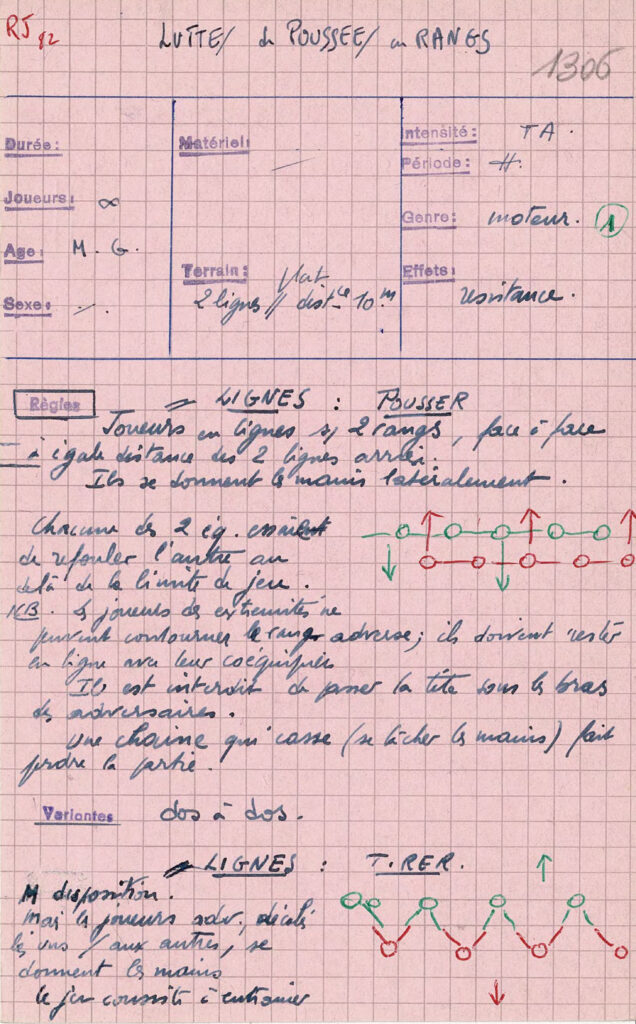 RJ 82
LUTTE/ de POUSSEE/ en RANGS
1306
Durée:
Joueurs: ∞
Age: M. G.
Sexe: /.
Matériel: /
Terrain: plat
2 lignes // distce 10m
Intensité: TA.
Période: #.
Genre: moteur. 1
Effets:
resistance.
Règles
= LIGNES : POUSSER
Joueurs en lignes s/ 2 rangs, face à face
à égale distance des 2 lignes arrièr.
Ils se donnent les mains latéralement.
Chacune des 2 éq. essaient
de refouler l'autre au
delà de la limite de jeu.
NB. Les joueurs des extremités ne
peuvent contourner le rang adverse; ils doivent rester
en ligne avec leur coéquipier
Il est interdit de passer la tête sous les bras
des adversaires.
Une chaine qui casse (se lâcher les mains) fait
perdre la partie.
Variantes dos à dos.
= LIGNES : TIRER.
M disposition.
Mais les joueurs adv, décalés
les uns / aux autres, se
donnent les mains
le jeu consiste à entrainer